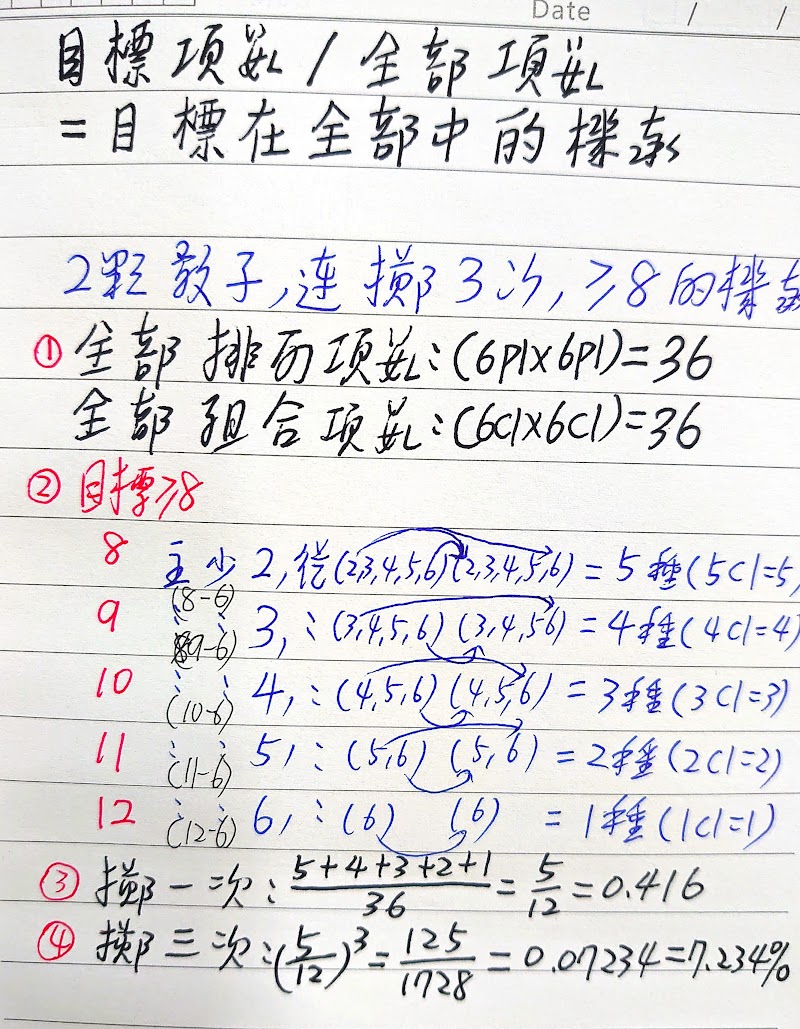 Date / /
目標項數/全部項數
=目標在全部中的機率
2顆骰子,連擲3次,≥8的機率
① 全部排列項數:(6P1×6P1)=36
全部組合項數:(6C1×6C1)=36
② 目標≥8
8 至少2,從(2,3,4,5,6)(2,3,4,5,6)=5種(5C1=5)
(8-6)
9 ⋮ ⋮ 3,⋮(3,4,5,6)(3,4,5,6)=4種(4C1=4)
(9-6)
10 ⋮ ⋮ 4,⋮(4,5,6)(4,5,6)=3種(3C1=3)
(10-6)
11 ⋮ ⋮ 5,⋮(5,6)(5,6)=2種(2C1=2)
(11-6)
12 ⋮ ⋮ 6,⋮(6)(6)=1種(1C1=1)
(12-6)
③ 擲一次:5+4+3+2+1/36=5/12=0.416
④ 擲三次:(5/12)³=125/1728=0.07234=7.234%